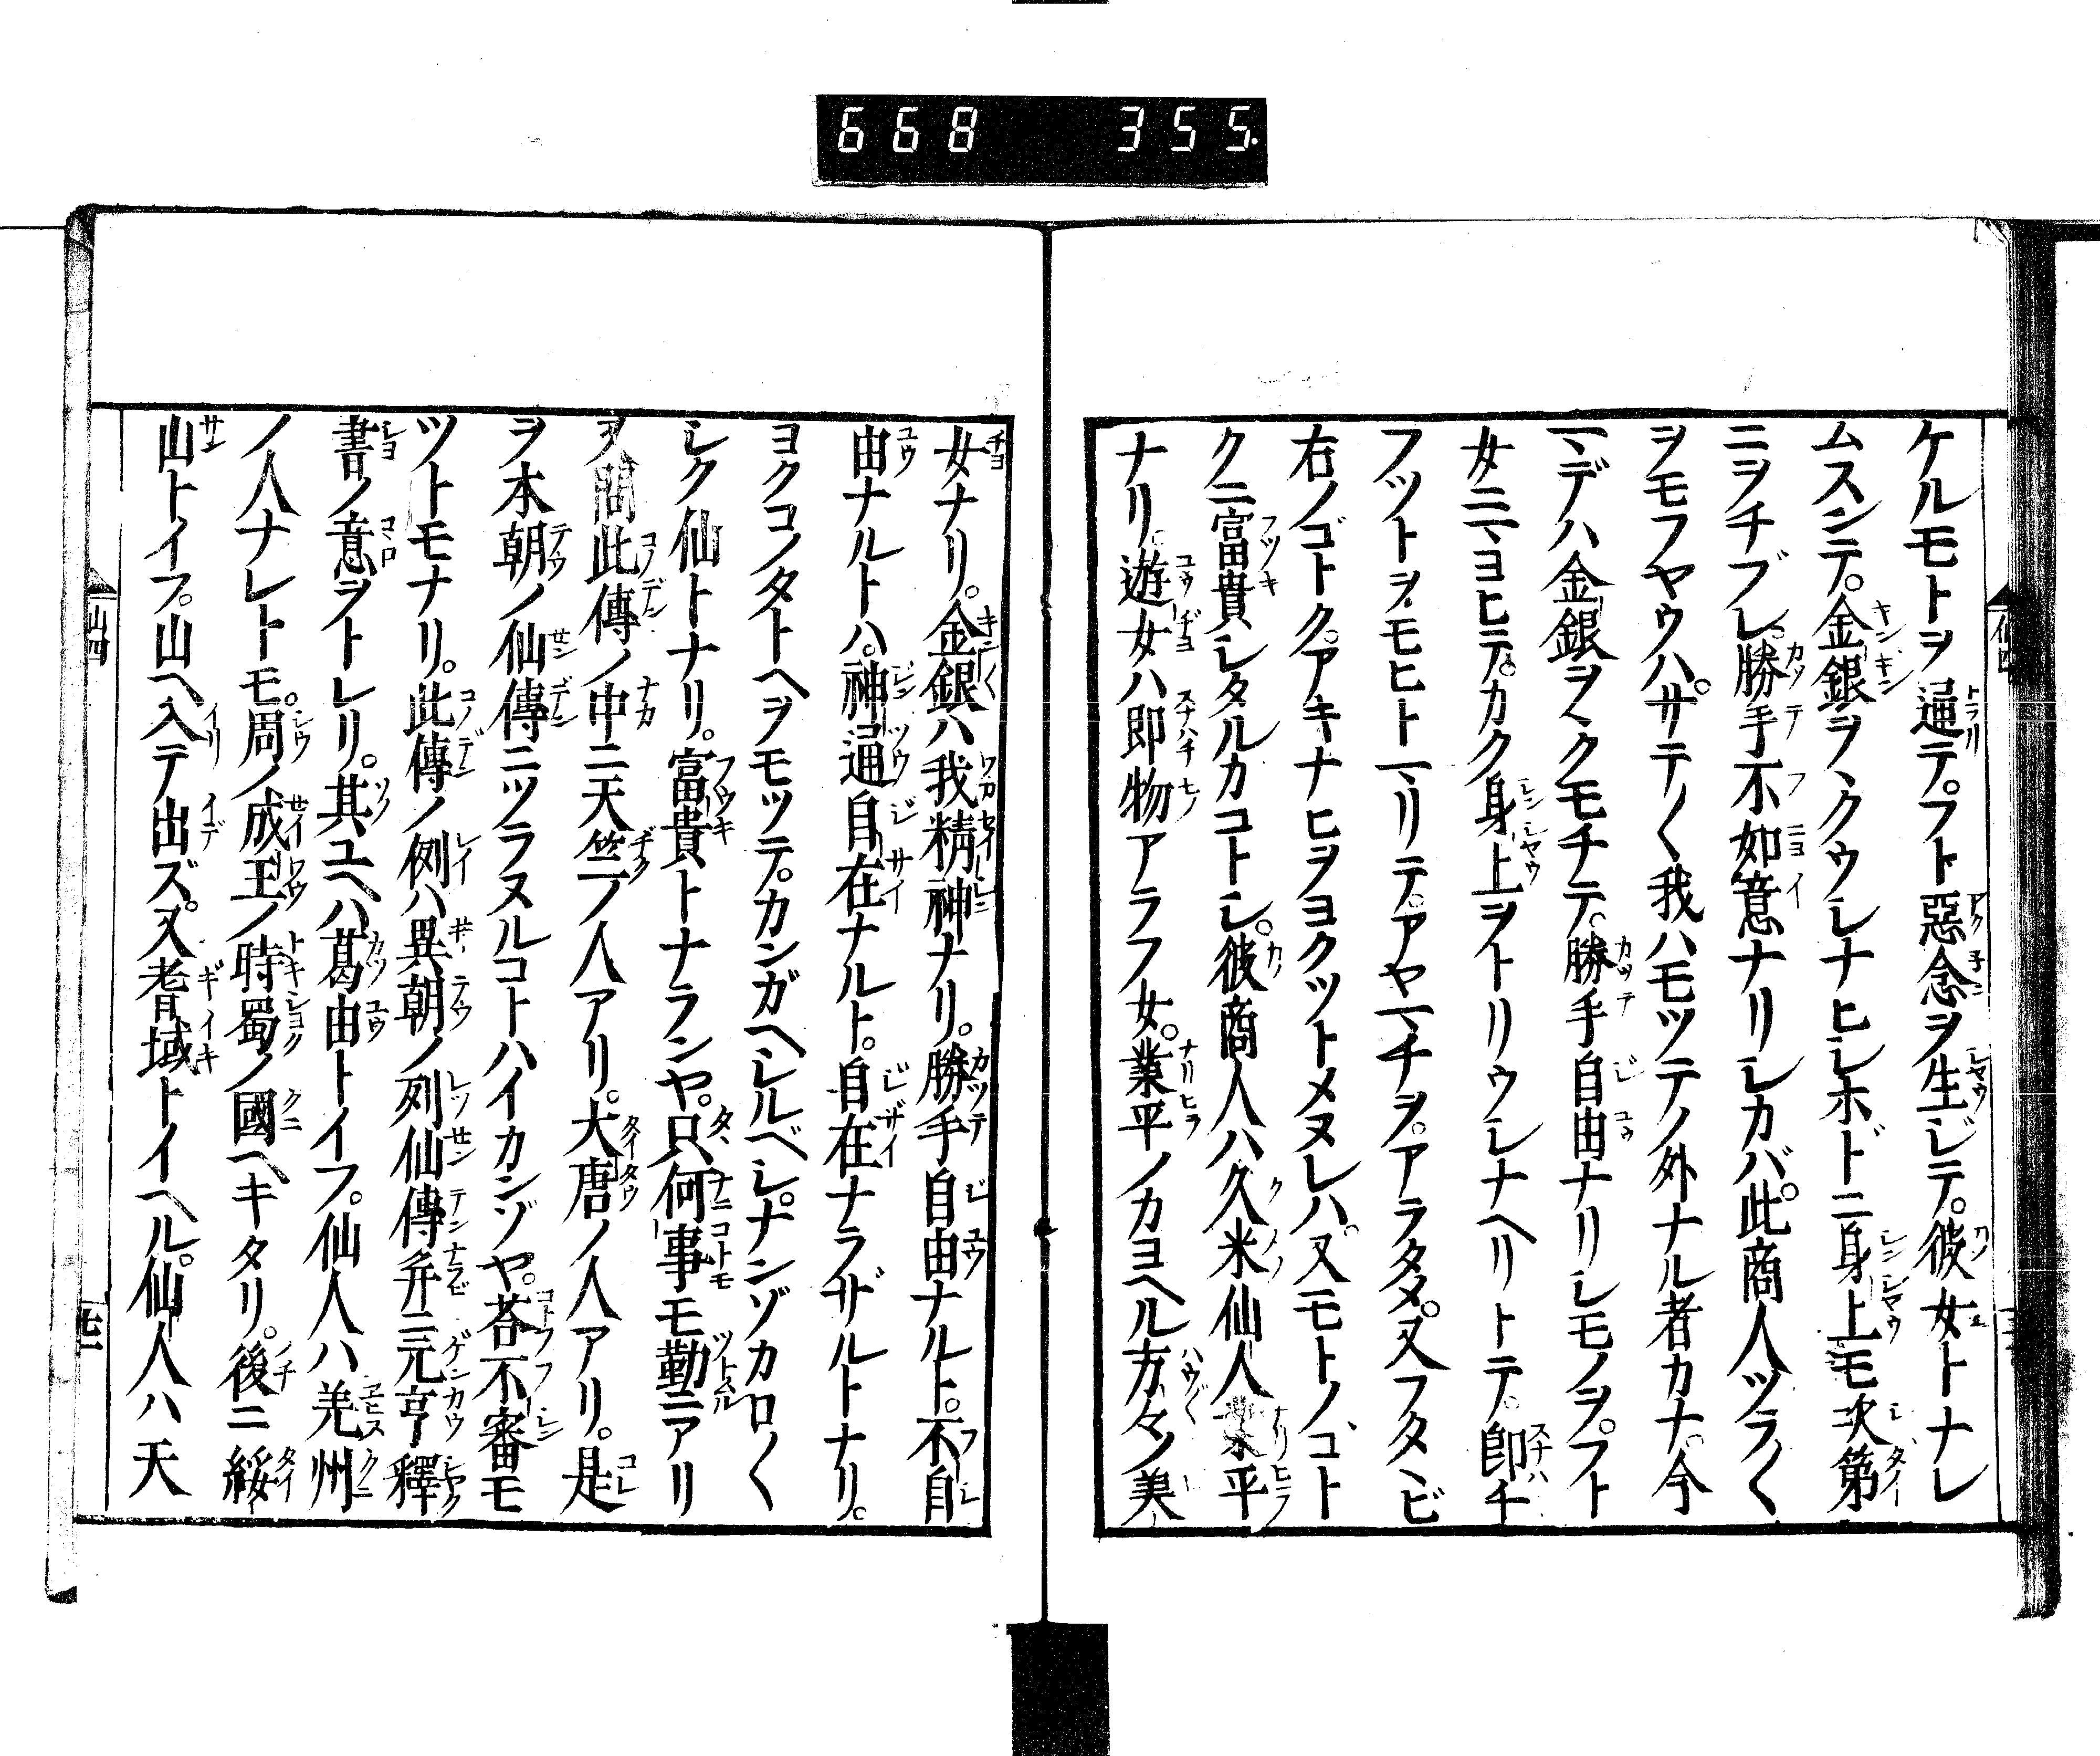 668 355.
ケルモトヲ通テ。フト惡念ヲ生ジテ。彼女トナレ
ムスンテ。金銀ヲヽクウレナヒシホドニ身上モ次第
ニヲチブレ。勝手不如意ナリシカバ。此商人ツラ〱
ヲモフヤウハ。サテ〱我ハモツテノ外ナル者カナ。今
マデハ金銀ヲヽクモチテ。勝手自由ナリシモノヲ。フト
女ニマヨヒテ。カク身上ヲトリウシナヘリトテ。即チ
フツトヲモヒトマリテ。アヤマチヲ。アラタメ。又フタヽビ
右ノゴトク。アキナヒヲヨクツトメヌレハ。又モトノコト
クニ富貴シタルカコトシ。彼商人ハ久米仙人業平
ナリ。遊女ハ即物アラフ女。業平ノカヨヘル方々ノ美
女ナリ。金銀ハ我精神ナリ。勝手自由ナルト。不自
由ナルトハ。神通自在ナルト。自在ナラザルトナリ。
ヨクコノタトヘヲモツテ。カンガヘシルベシ。ナンゾカロ〱
シク仙トナリ。富貴トナランヤ。只何事モ勤ニアリ
又問此傳ノ中ニ天竺ノ人アリ。大唐ノ人アリ。是
ヲ本朝ノ仙傳ニツラヌルコトハイカンゾヤ。荅不審モ
ツトモナリ。此傳ノ例ハ異朝ノ列仙傳并ニ元亨釋
書ノ意ヲトレリ。其ユヘハ葛由トイフ。仙人ハ羌州
ノ人ナレトモ。周ノ成王ノ時蜀ノ國ヘキタリ。後ニ綏
山トイフ。山ヘ入テ出ズ。又耆域トイヘル。仙人ハ天